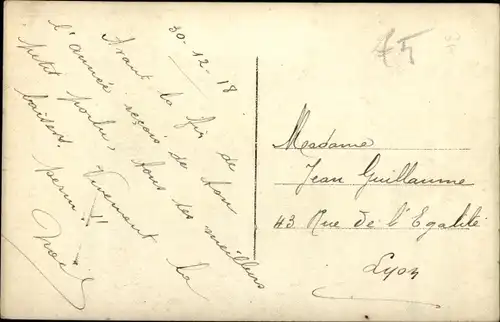 30-12-18
Avant la fin de
l'année reçois de ton
petit poilu, tous les meilleurs
baisers. Vivement la
perm !!
Noël
Madame
Jean Guillaume
43 Rue de l'Egalité
Lyon